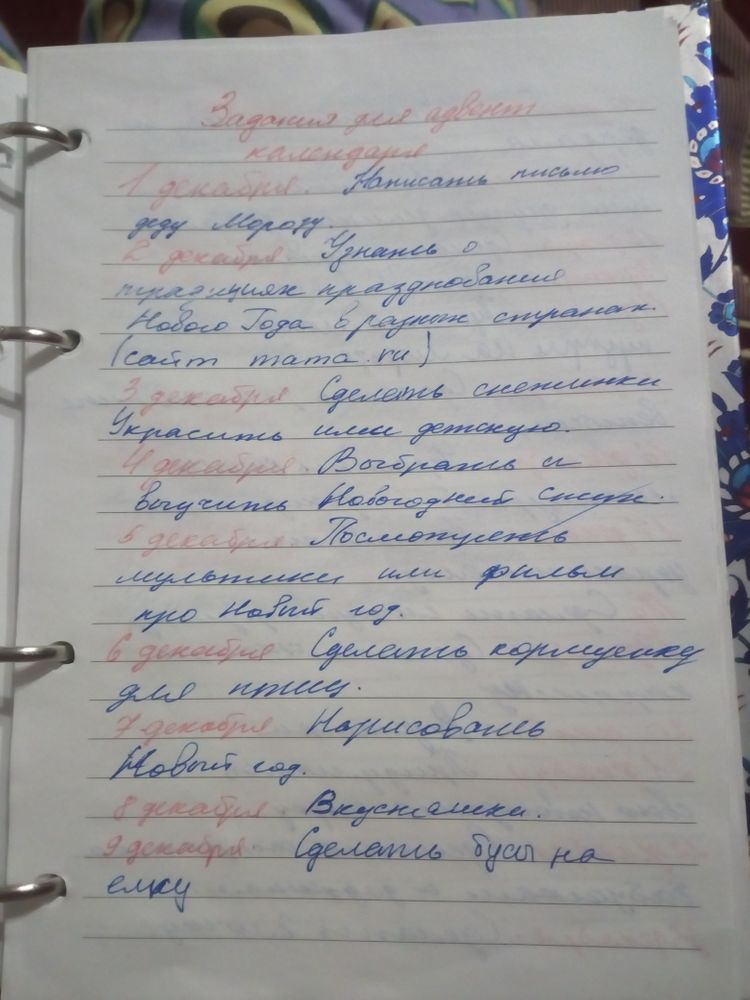 Задания для адвент
календаря
1 декабря. Написать письмо
деду Морозу.
2 декабря Узнать о
традициях празднования
Нового Года в разных странах.
(сайт mama.ru)
3 декабря Сделать снежинки
Украсить ими детскую.
4 декабря Выбрать и
выучить Новогодний стих.
5 декабря Посмотреть
мультики или фильм
про Новый год.
6 декабря Сделать кормушку
для птиц.
7 декабря Нарисовать
Новый год.
8 декабря Вкусняшка.
9 декабря Сделать бусы на
елку